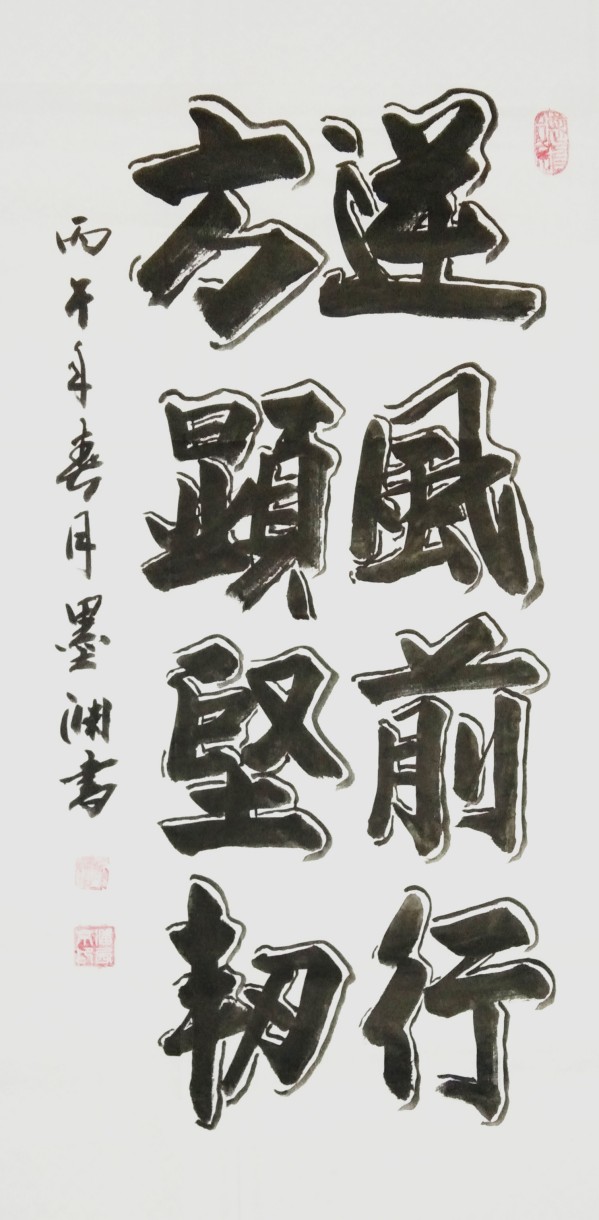 逆風前行
方顯堅韌
丙午年春月墨渊書